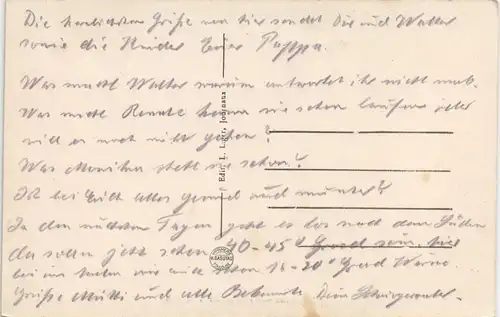 Die herzlichsten Grüße von hier sendet Dir und Walter
sowie die Kinder Euer Pappa.
Was macht Walter warum antwortet ihr nicht mehr.
Was macht Renate kann sie schon laufen oder
will es noch nicht gehen?
Was Monika steht sie schon?
Ist bei Euch alles gesund und munter?
In den nächsten Tagen geht es los nach dem Süden
da sollen jetzt schon 40-45° Grad sein, hier
bei uns haben wir auch schon 18-20° Grad Wärme
Grüße Mutti und alle Bekannte Dein Schwiegervater
Edit. I. L.